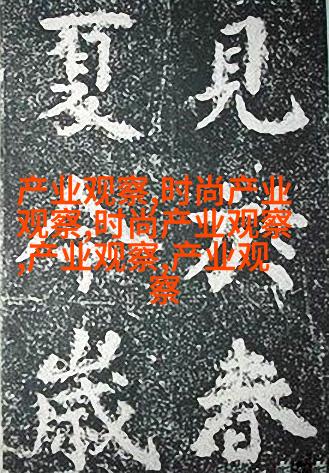 見春
夏歲
产业观察,时尚产业
观察,时尚产业观察
,产业观察,产业观
察